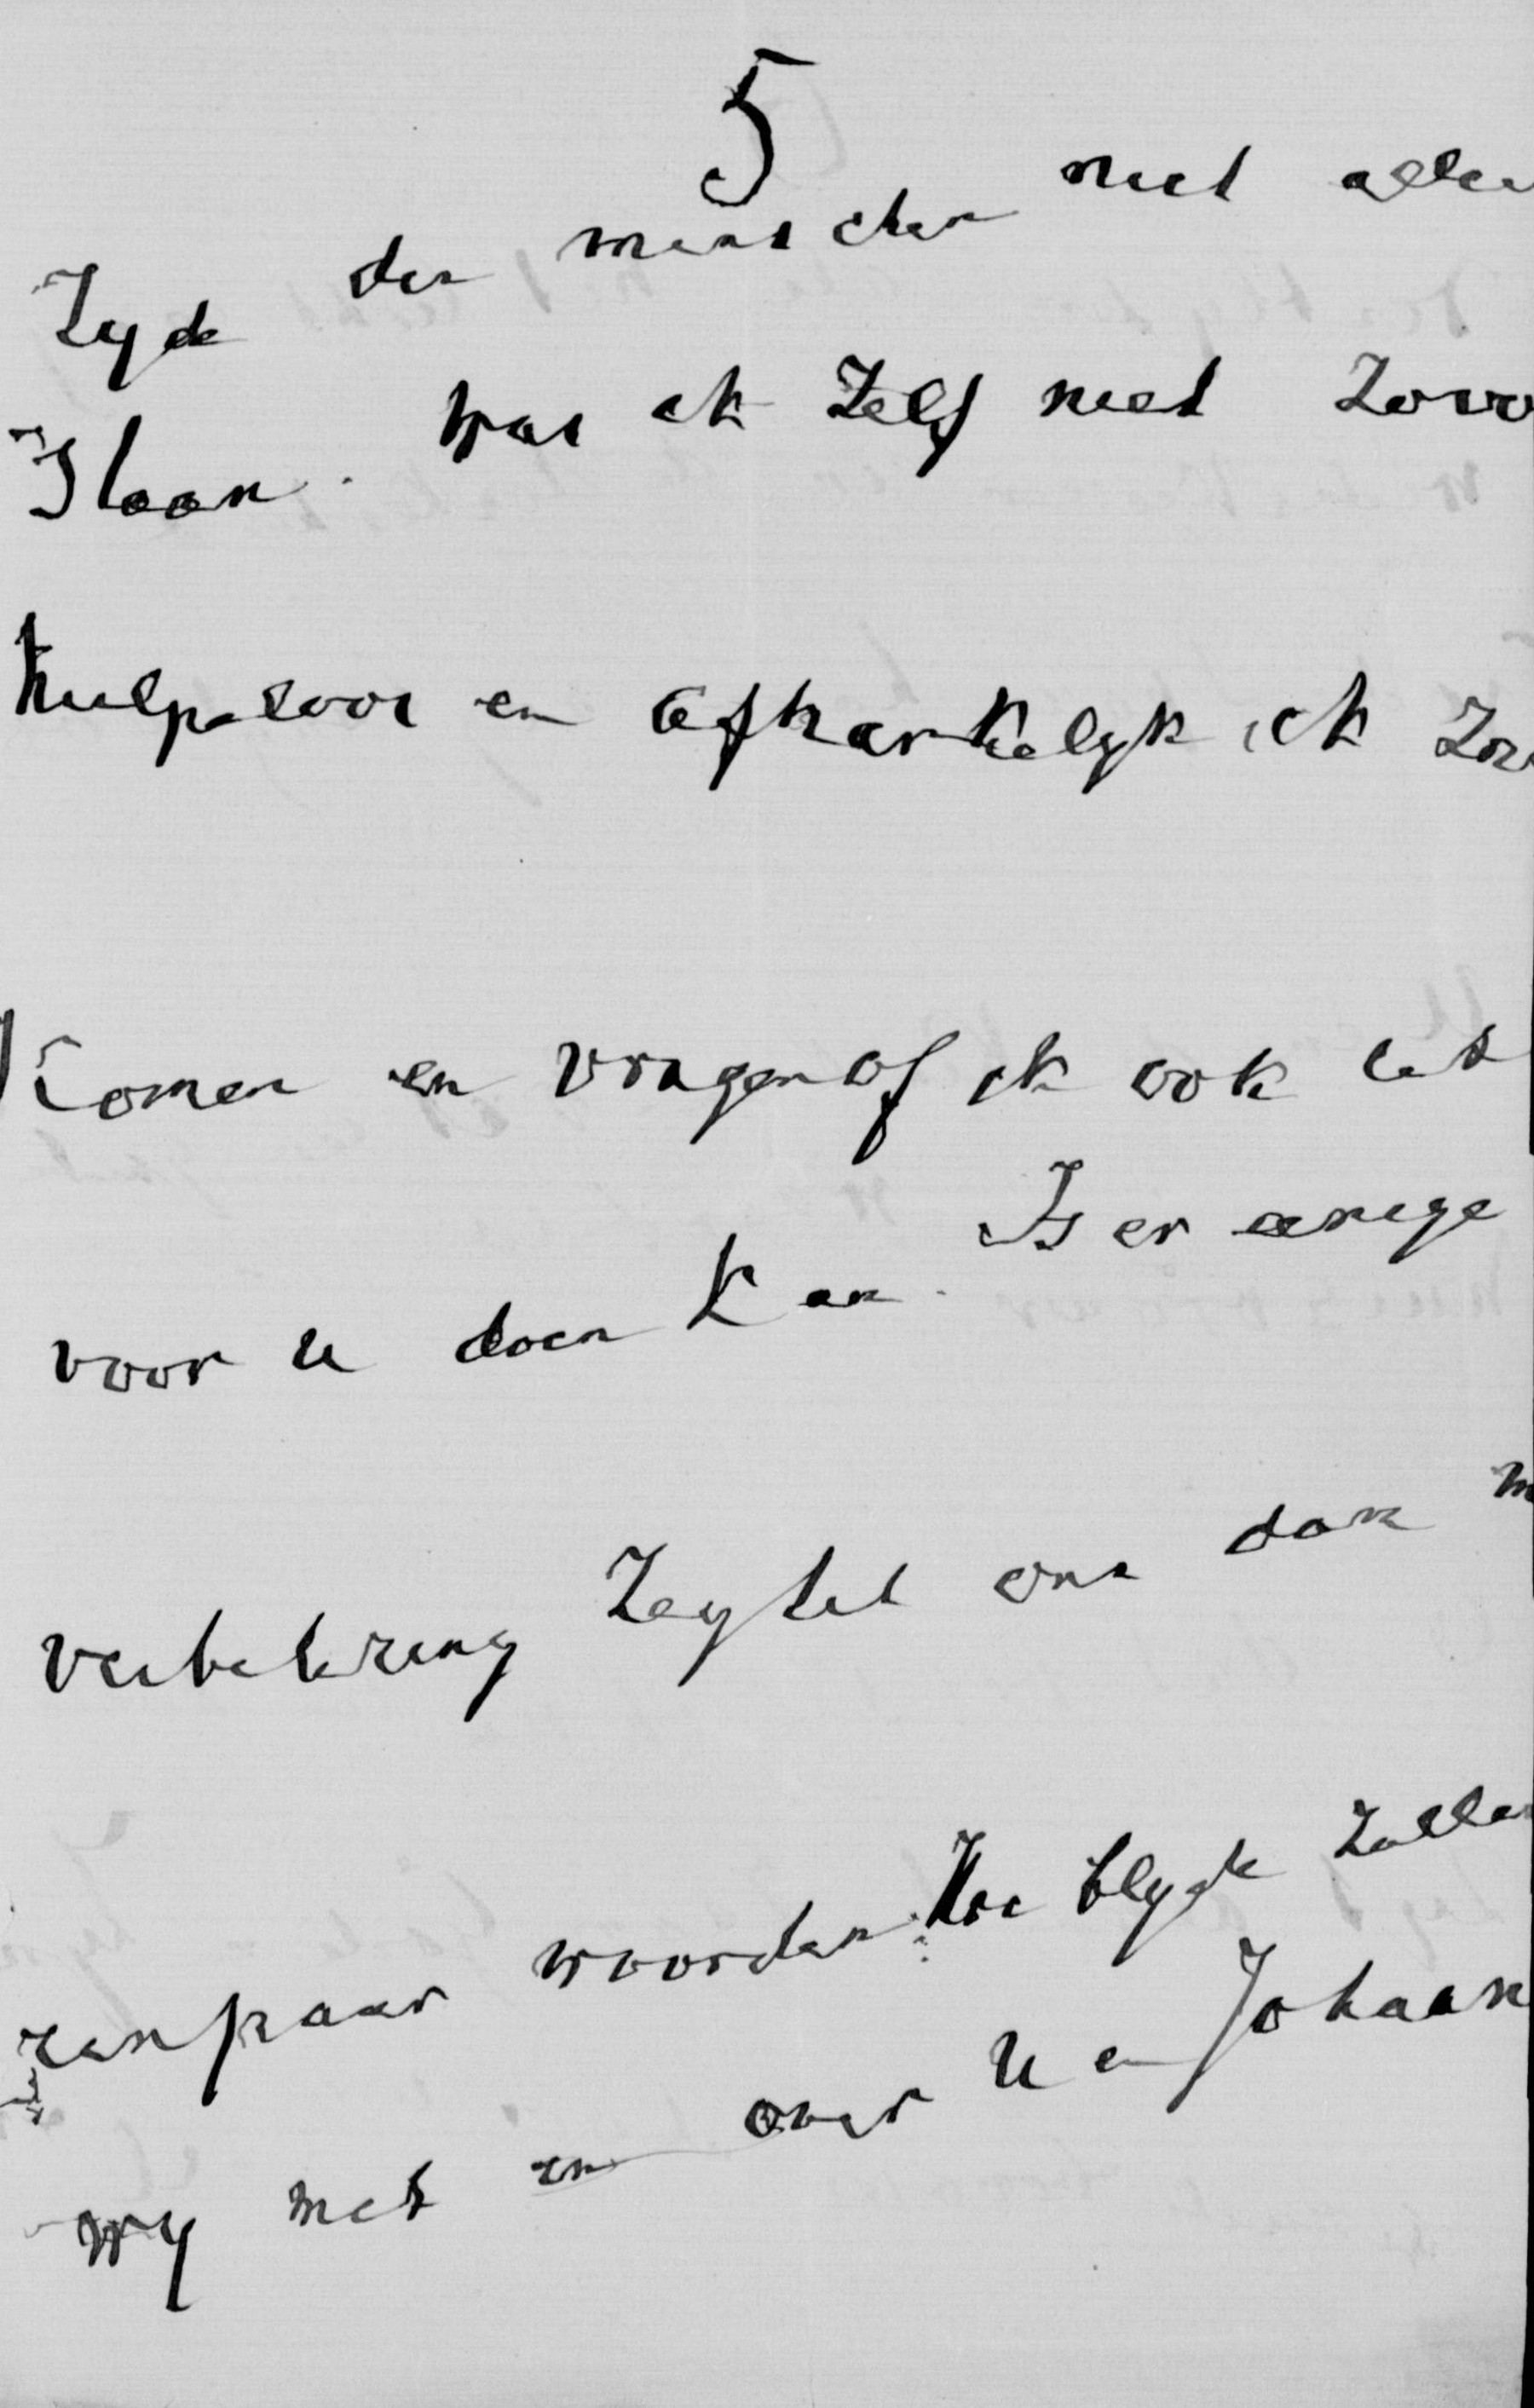 5
Zyde der menschen niet alleen
Staan. Was ik Zelf niet Zoo
hulpeloos en afhankelyk ik Zou
Komen en vragen of ik ook iets
voor u doen kan. Is er eenige
verbetering Zeg het ons dan m
een paar woorden. Hoe blyde Zullen
wy met en over u en Johaan